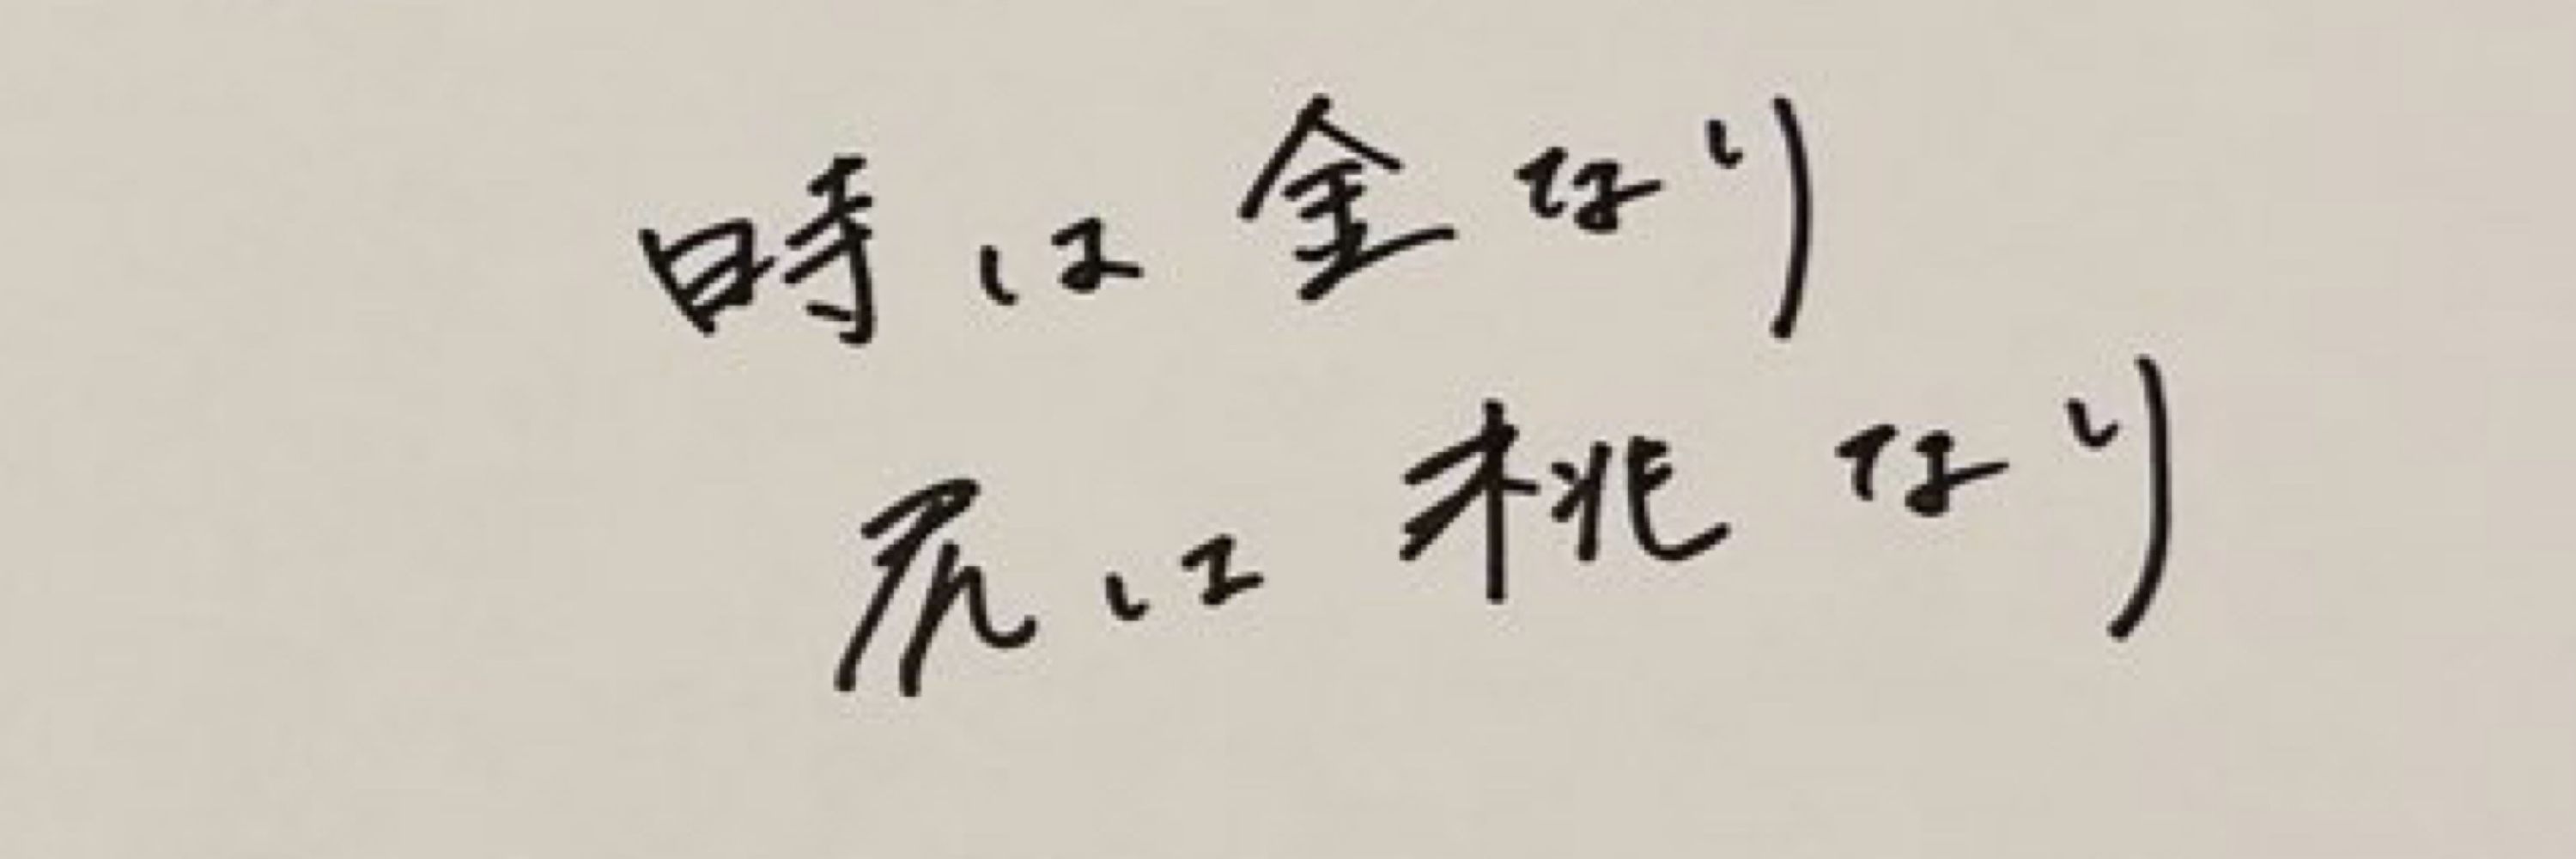 時は金なり
尻は桃なり